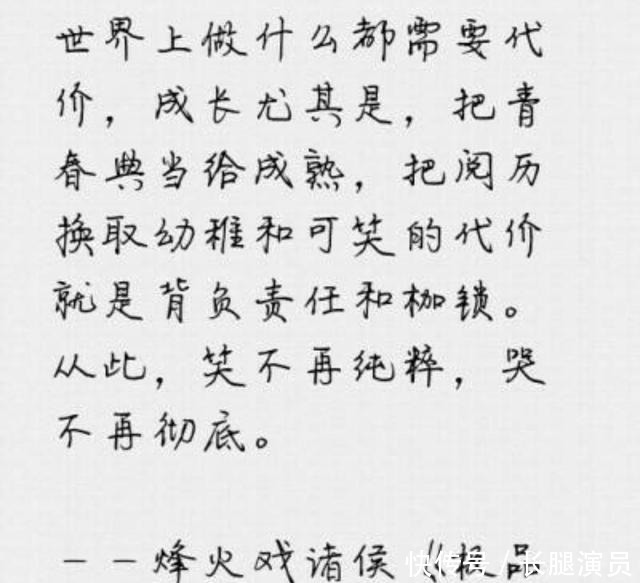 世界上做什么都需要代
价，成长尤其是，把青
春典当给成熟，把阅历
换取幼稚和可笑的代价
就是背负责任和枷锁。
从此，笑不再纯粹，哭
不再彻底。
——烽火戏诸侯《极品
快传号／长腿演员